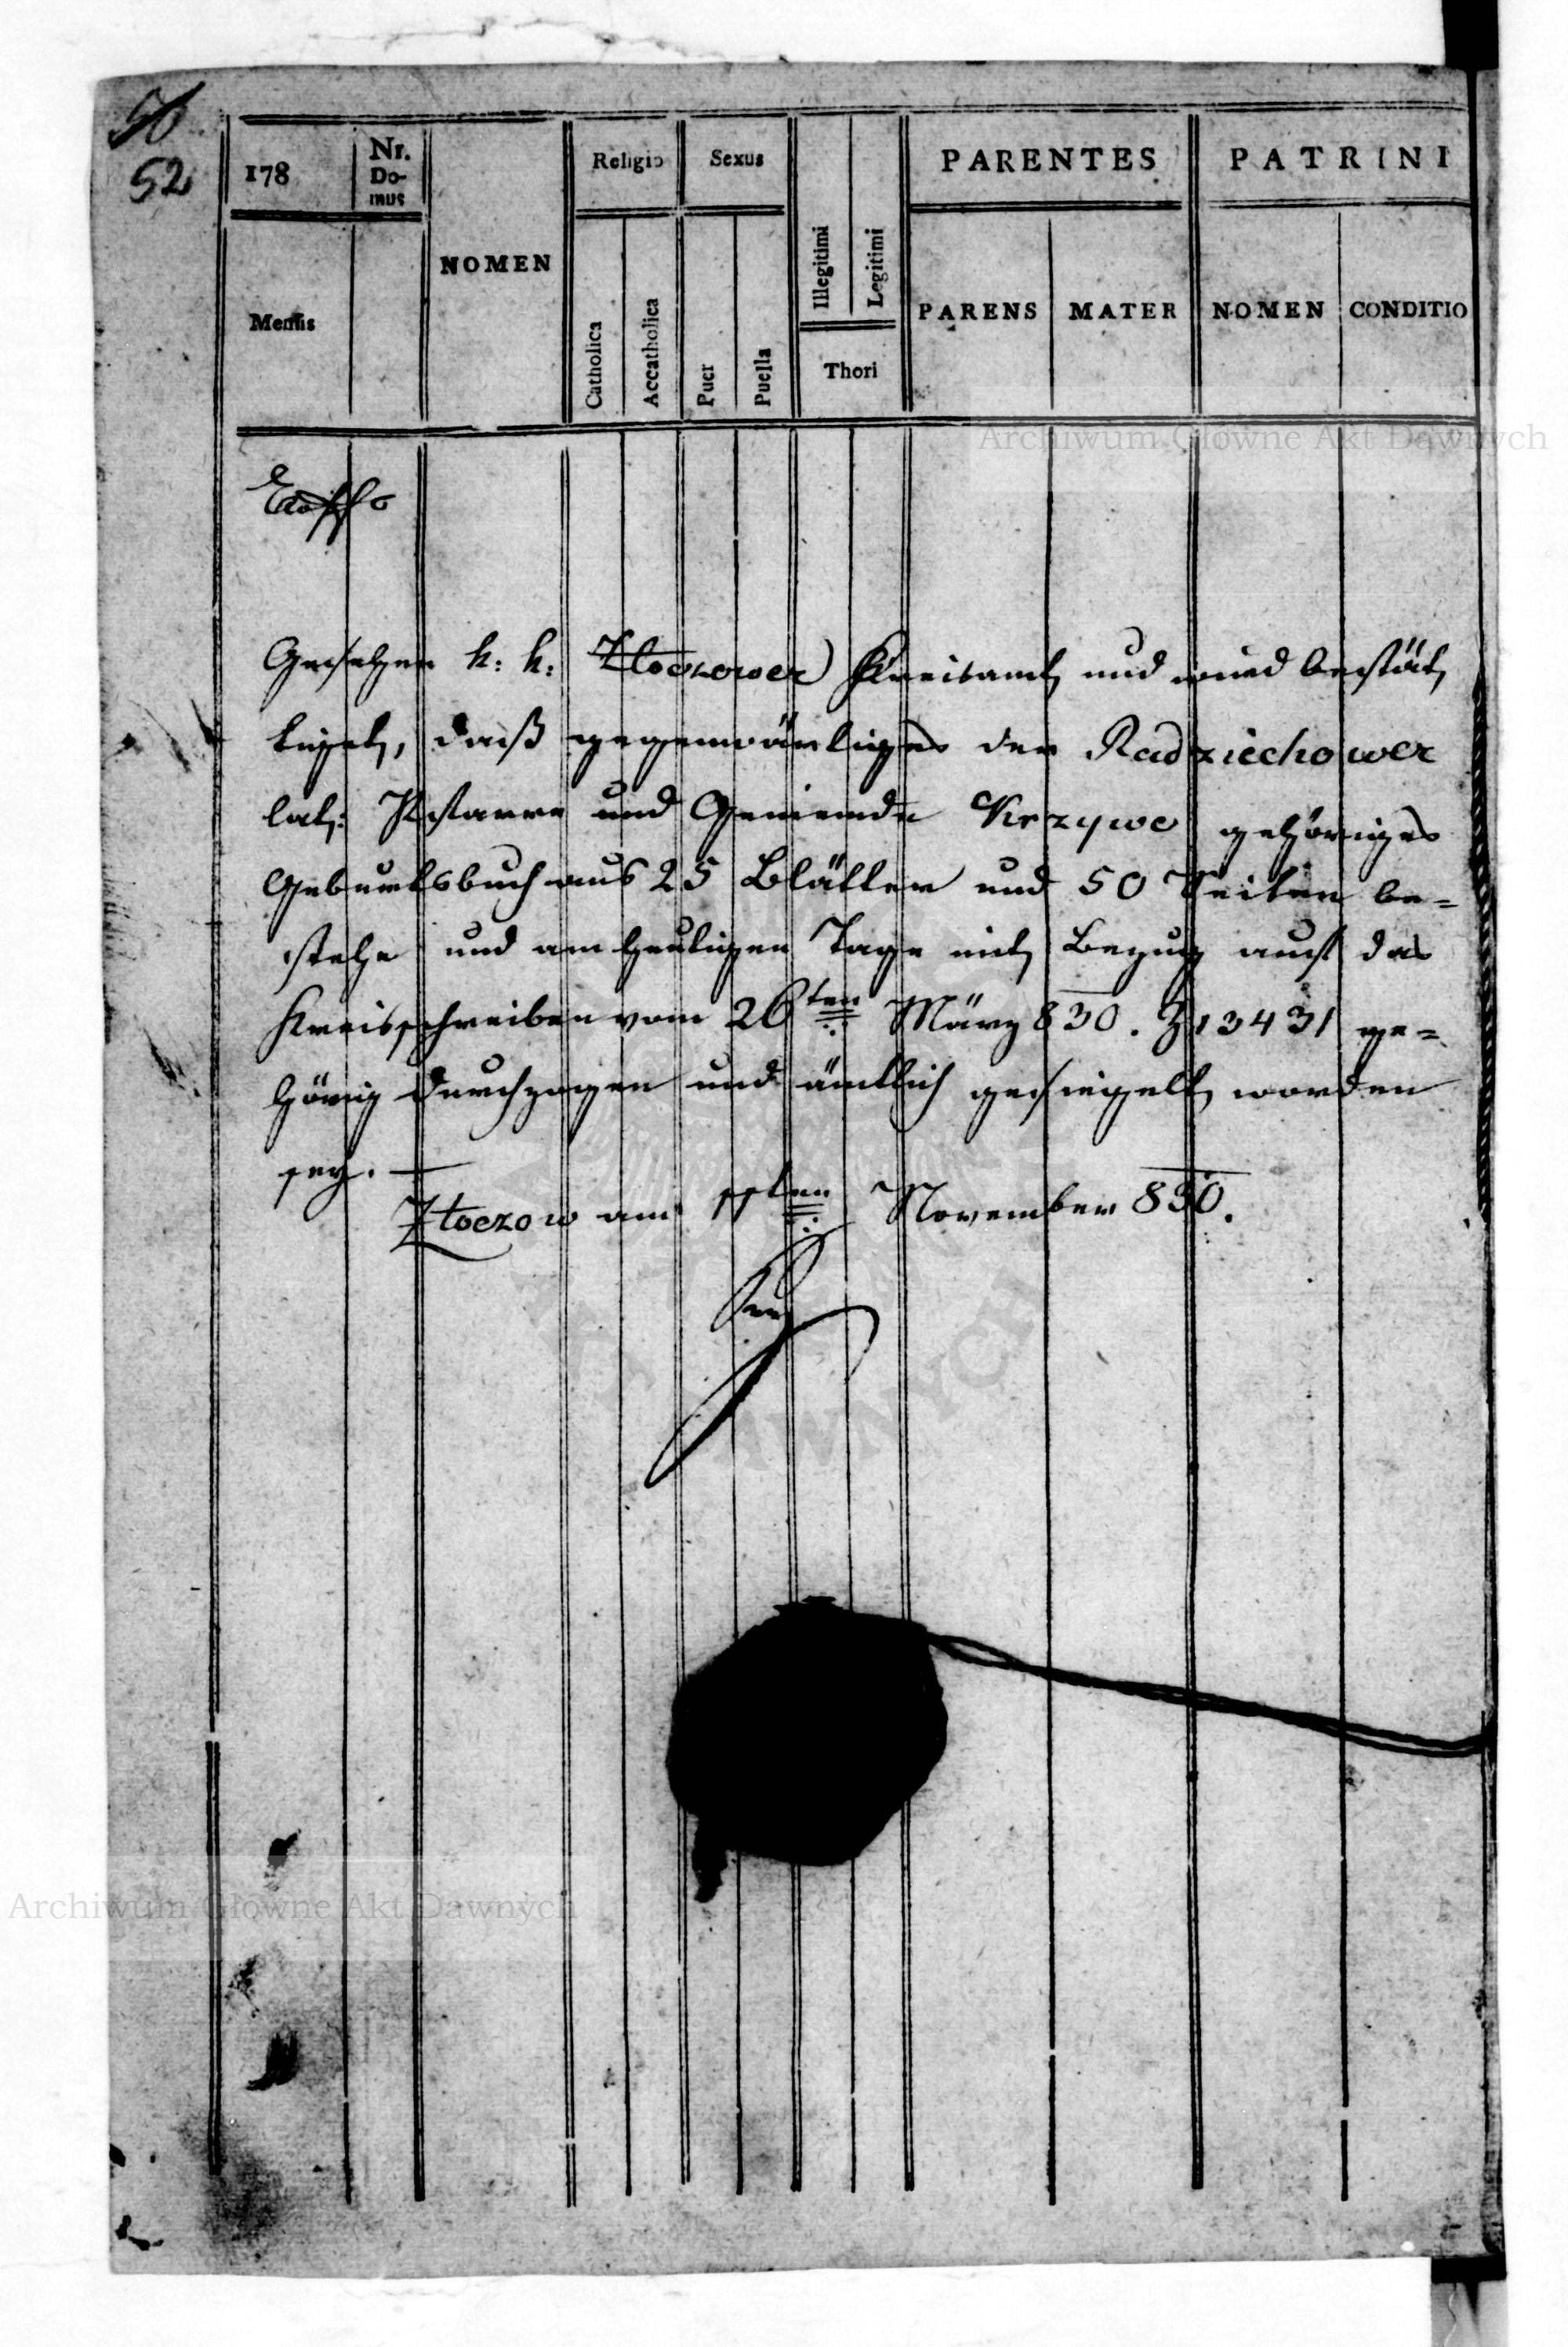 50
52
178 Nr. Do- mus NOMEN Religio Sexus Illegitimi Legitimi PARENTES PATRINI
Mensis Catholica Accatholica Puer Puella Thori PARENS MATER NOMEN CONDITIO
Archiwum Główne Akt Dawnych
Gesehen k: k: Złoczower Kreisamt und wird bestät
tiget, daß gegenwärtiges der Radziechower
lat: Pfarre und Gemeinde Krzywe gehöriges
Geburtsbuch aus 25 Blätter und 50 Seiten be=
stehe und am heutigen Tage mit Bezug auf das
Kreisschreiben vom 26ten März 830. Z 13431 ge=
hörig durchzogen und ämtlich gesiegelt worden
sey. —
Złoczow am ten November 830.
Archiwum Główne Akt Dawnych